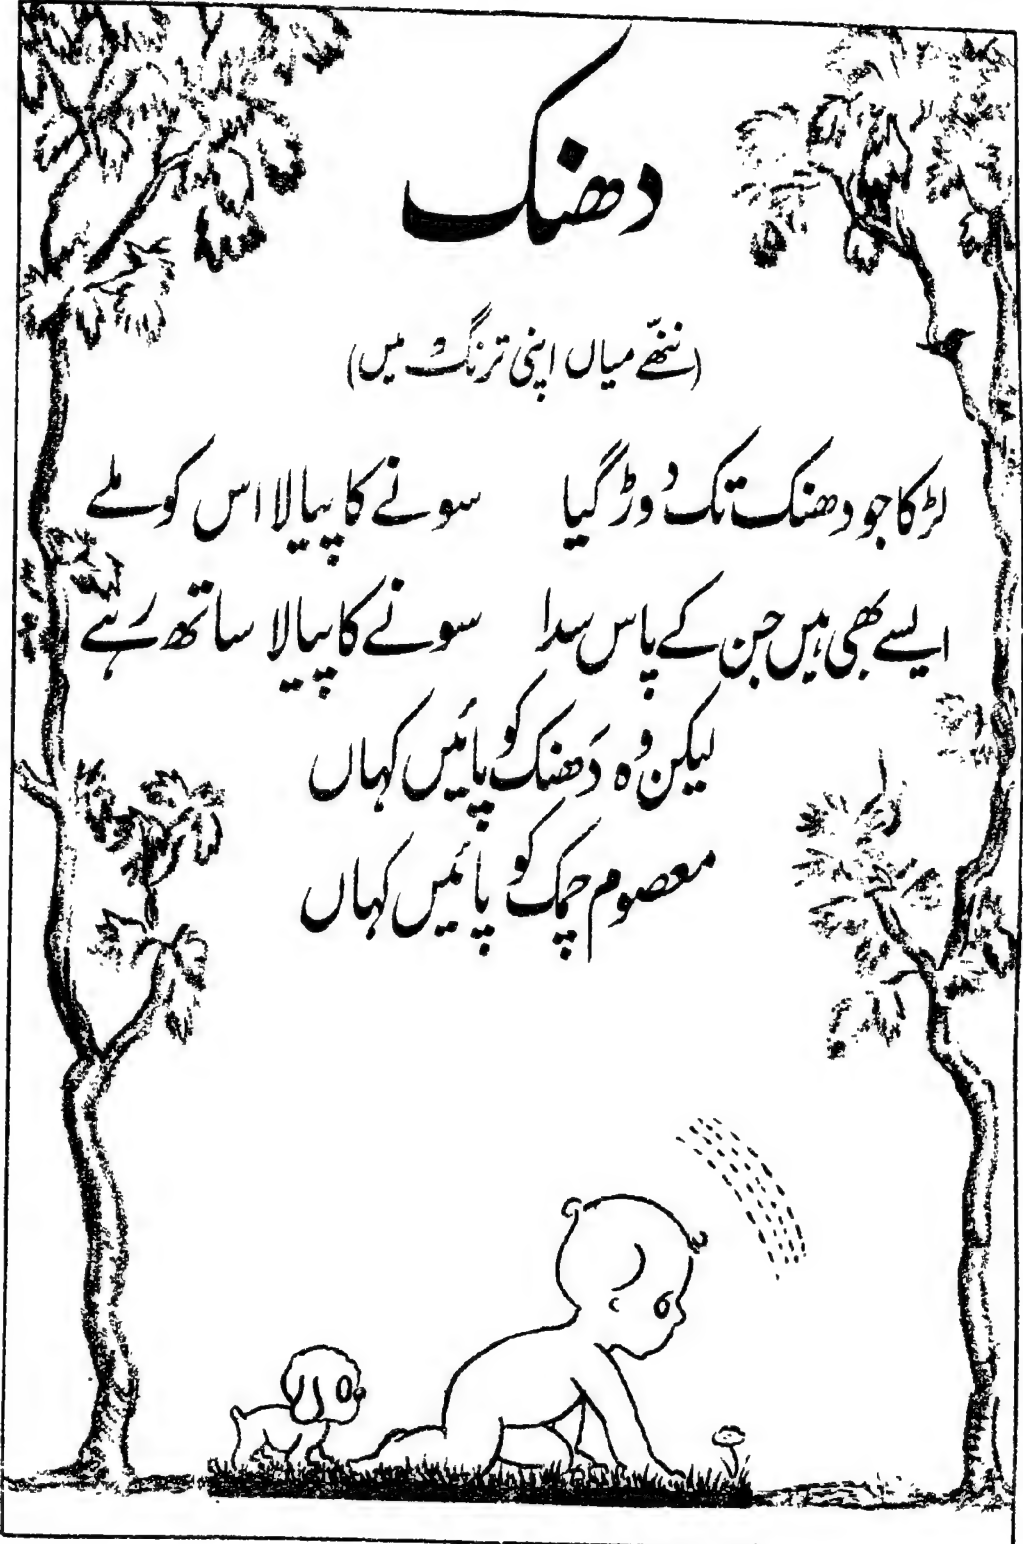 دھنک
(ننھّے میاں اپنی ترنگ میں)
لڑکا جو دھنک تک دوڑ گیا سونے کا پیالا اس کو ملے
ایسے بھی ہیں جن کے پاس سدا سونے کا پیالا ساتھ رہے
لیکن وہ دَھنک کو پائیں کہاں
معصوم چمک کو پائیں کہاں